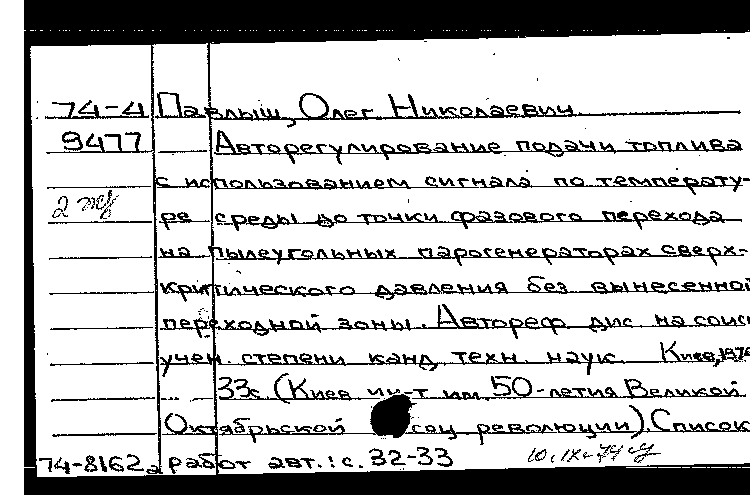 74-4 Павлыш, Олег Николаевич
9477 Авторегулирование подачи топлива
с использованием сигнала по температу-
2 ре среды до точки фазового перехода
на пылеугольных парогенераторах сверх-
критического давления без вынесенной
переходной зоны. Автореф. дис. на соиск
учен. степени канд. техн. наук. Киев, 1974
33с. (Киев ин-т им. 50-летия Великой
Октябрьской соц революции). Список
74-8162а работ авт.: с. 32-33 10.IX-74